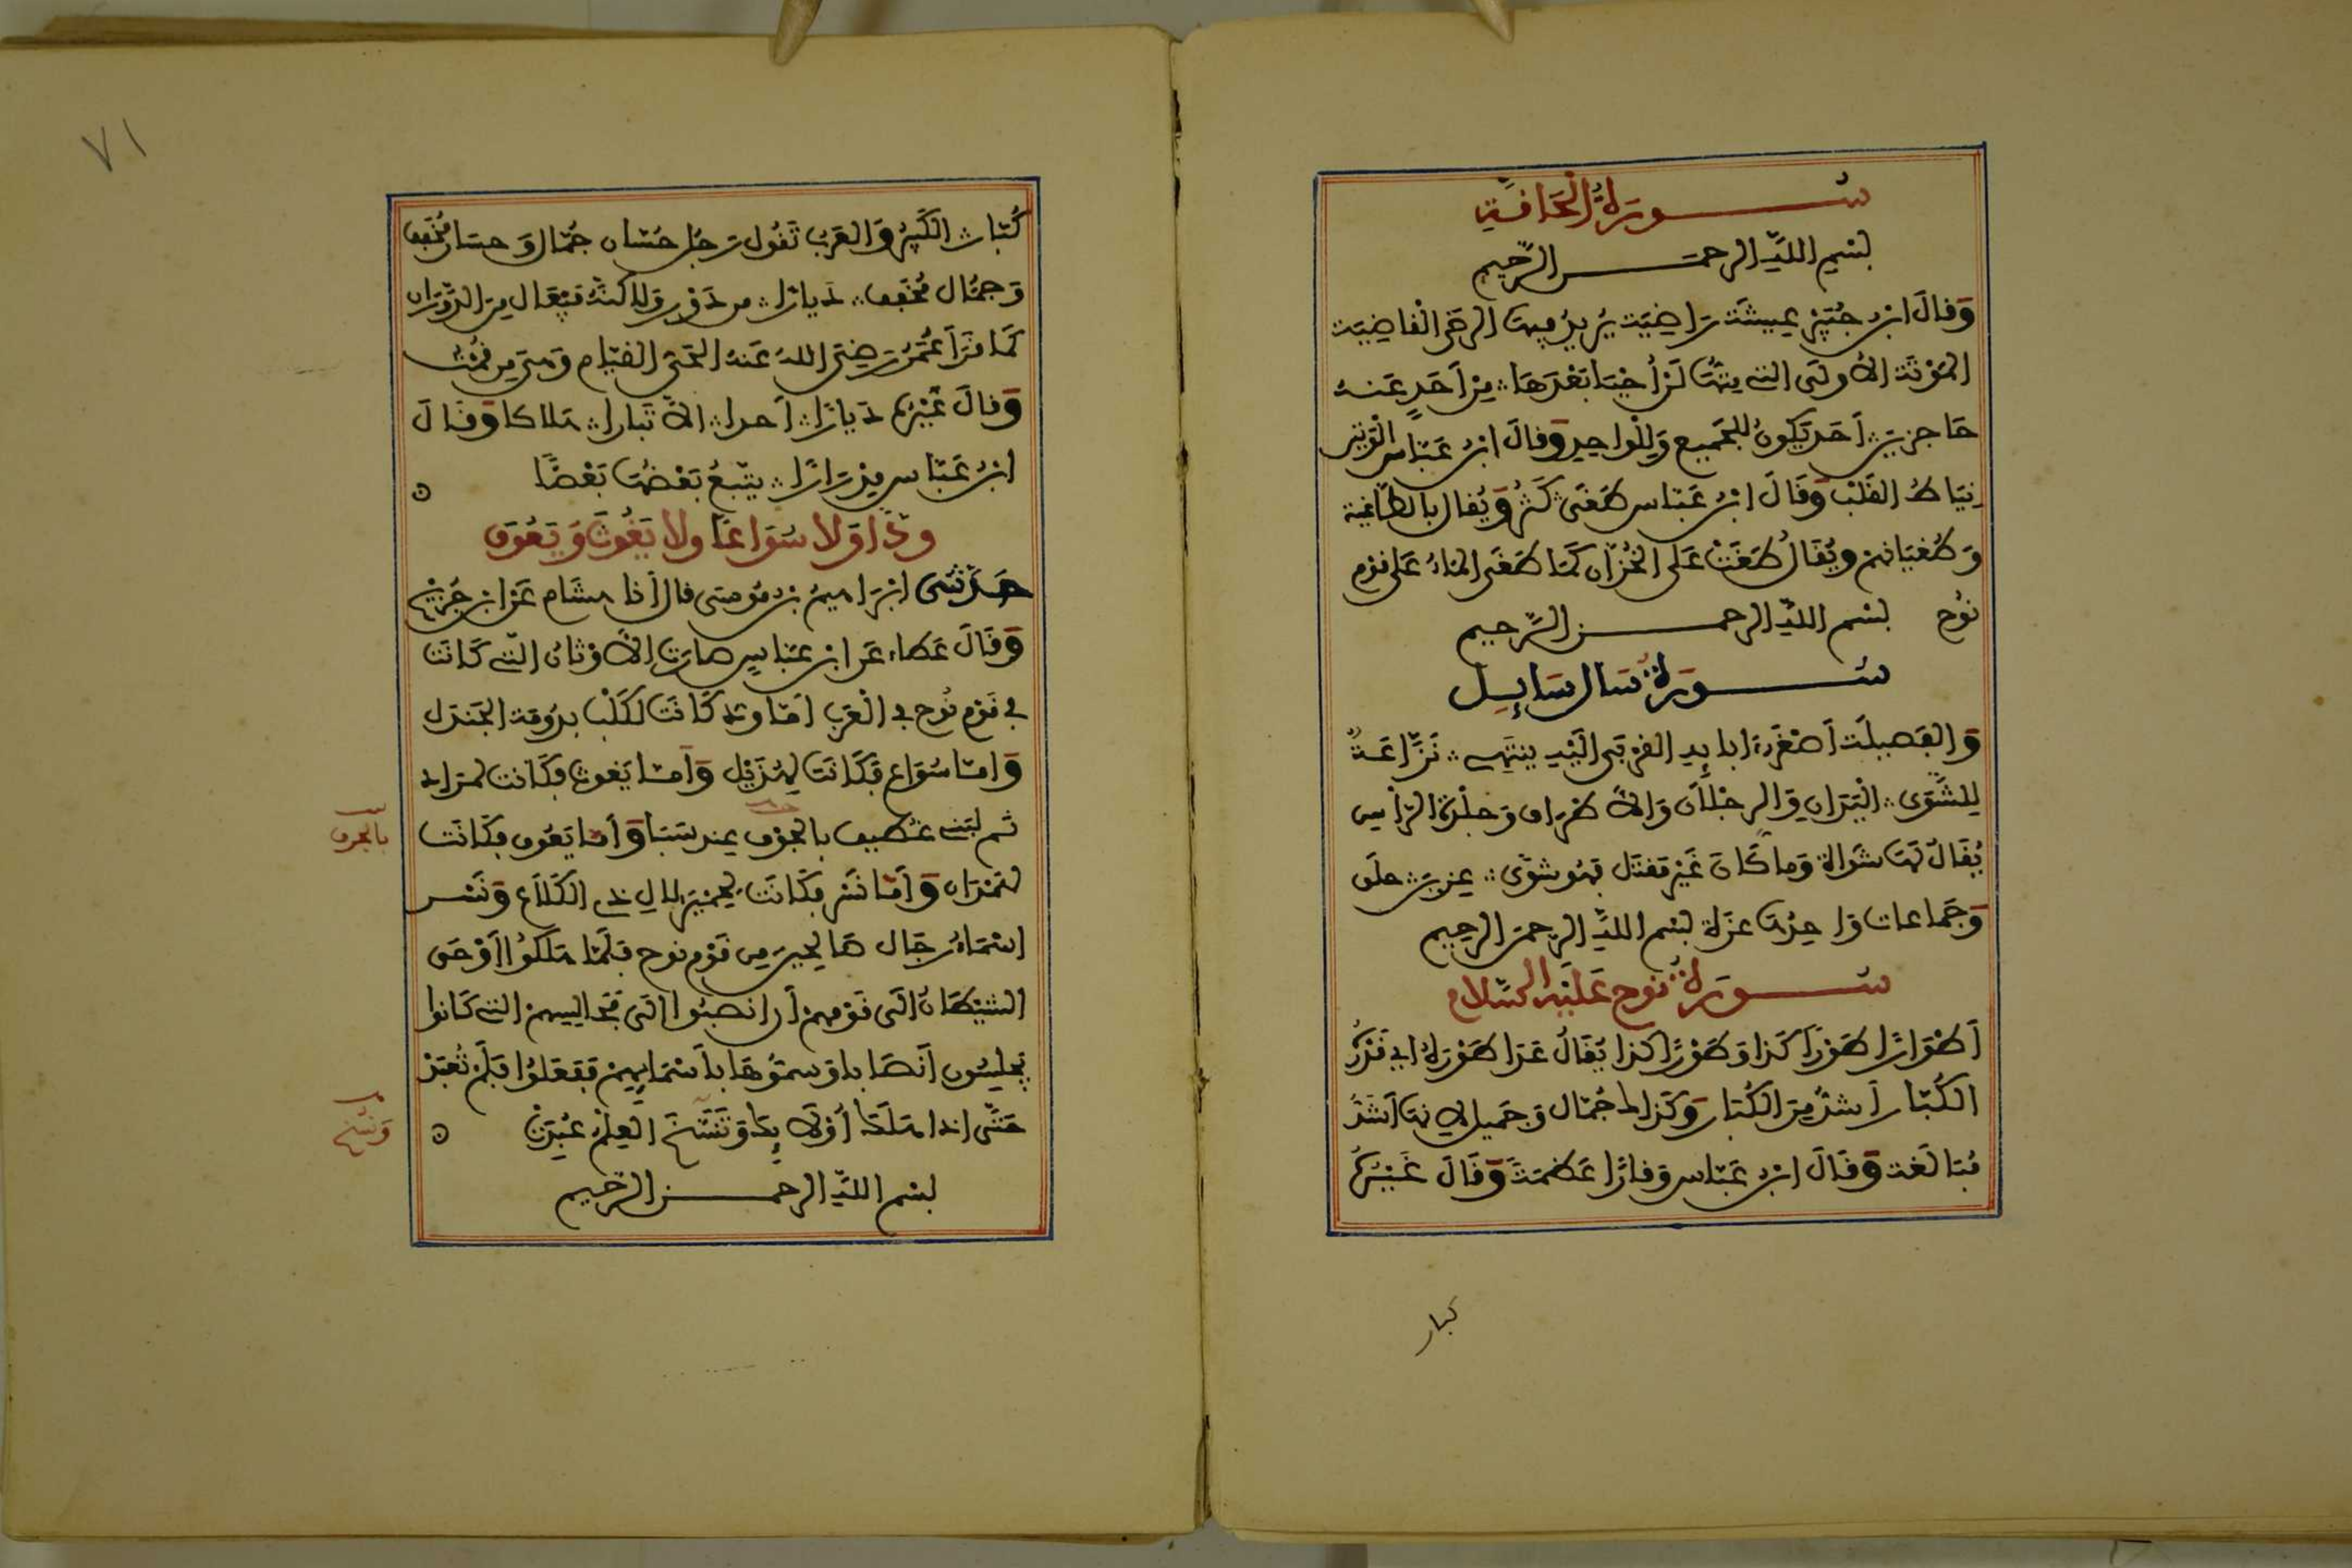 سورة الحاقة
بسم الله الرحمن الرحيم
وقال ابن جبير عيشة راضية يريد فيها الرضى القاضية
الموتة الأولى التي متها لم أحيا بعدها من أحد عنه
حاجزين أحد يكون للجميع وللواحد وقال ابن عباس الوتين
نياط القلب وقال ابن عباس طغى كثر ويقال بالطاغية
وطغيانهم ويقال طغت على الخزان كما طغى الماء على قوم
نوح بسم الله الرحمن الرحيم
سورة سال سايل
والفصيلة أصغر ابايه القربى اليه ينتهي نزاعة
للشوى اليدان والرجلان والأطراف وجلدة الرأس
يقال لها شواة وما كان غير مقتل فهو شوى عزين حلق
وجماعات واحدها عزة بسم الله الرحمن الرحيم
سورة نوح عليه السلام
أطوارا طورا كذا وطورا كذا يقال عدا طوره أي قدره
الكبار أشد من الكبار وكذلك جمال وجميل لانها أشد
مبالغة وقال ابن عباس وقارا عظمة وقال غيره
كبار
٧١
كبار الكبير والعرب تقول رجل حسان جمال وحسان مخفف
وجمال مخفف ديارا من دور ولاكنه فيعال من الدوران
كما قرأ عمر رضي الله عنه الحي القيام وهي من قمت
وقال غيرهم ديارا أحدا الا تبارا هلاكا وقال
ابن عباس مدرارا يتبع بعضها بعضا
ودا ولا سواعا ولا يغوث ويعوق
حدثني ابراهيم بن موسى قال أنا هشام عن ابن جريج
وقال عطاء عن ابن عباس صارت الأوثان التي كانت
في قوم نوح في العرب أما ود كانت لكلب بدومة الجندل
وأما سواع فكانت لهذيل وأما يغوث فكانت لمراد
ثم لبني غطيف بالجوف عند سبا وأما يعوق فكانت
بالجرف
لهمدان وأما نسر فكانت لحمير لال ذي الكلاع ونسر
اسماء رجال صالحين من قوم نوح فلما هلكوا أوحى
الشيطان الى قومهم أن انصبوا الى مجالسهم التي كانوا
يجلسون أنصابا وسموها بأسمايهم ففعلوا فلم تعبد
حتى اذا هلك أولايك وتنسخ العلم عبدت
ونسخ
بسم الله الرحمن الرحيم